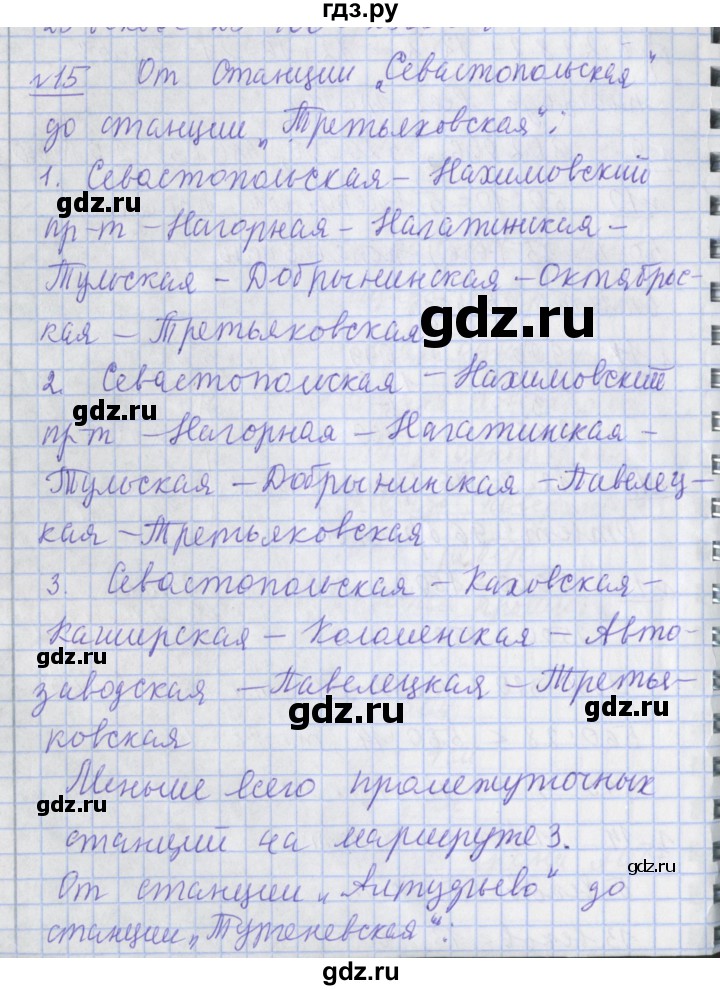 гдз.ру
№15 От станции „Севастопольская"
до станции „Третьяковская":
1. Севастопольская – Нахимовский
gdz.ru
пр-т – Нагорная – Нагатинская –
Тульская – Добрынинская – Октябрьс-
gdz.ru
кая – Третьяковская
2. Севастополская – Нахимовский
gdz.ru
gdz.ru
пр-т – Нагорная – Нагатинская –
Тульская – Добрынинская – Павелец-
кая – Третьяковская
3. Севастопольская – Каховская –
Каширская – Коломенская – Авто-
gdz.ru
заводская – Павелецкая – Третья-
gdz.ru
gdz.ru
ковская
Меньше всего промежуточных
gdz.ru
станций на маршруте 3.
gdz.ru
От станции „Алтудьево" до
станции „Тургеневская":
gdz.ru
gdz.ru